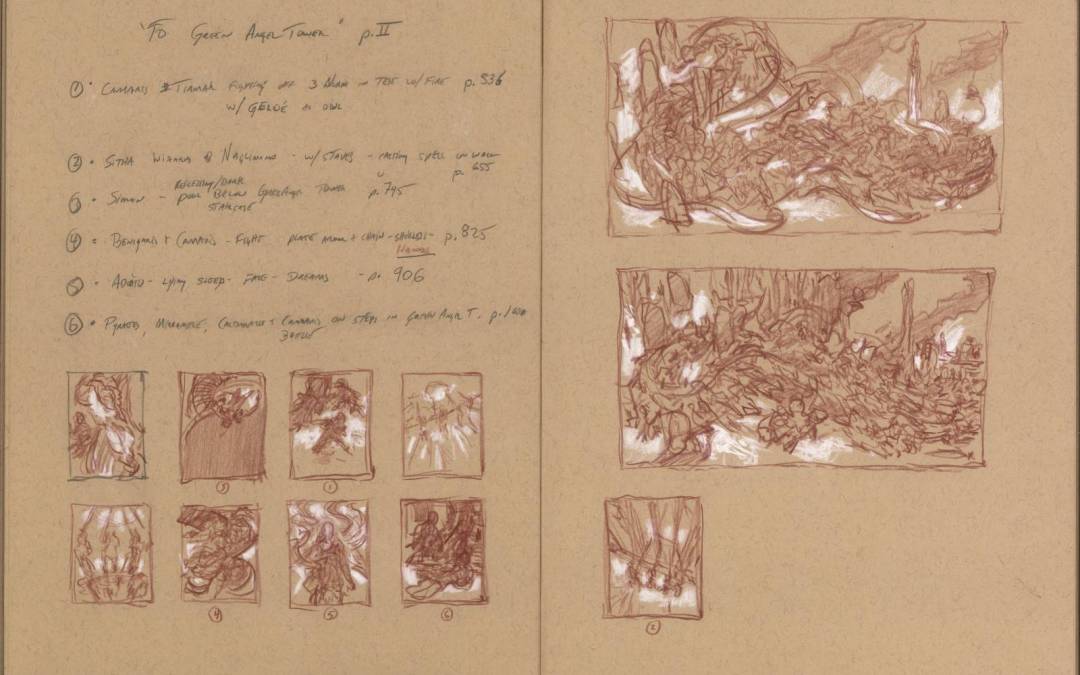 "To Green Angel Tower" p. II
① • Camaris & Tiamak fighting off 3 Norn in tent w/ fire p. 536
w/ Geloë as owl
② • Sitha wizards @ Naglimund - w/ staves - casting spell on wall
p. 655
③ • Simon - pool below Green Angel Tower p. 795
reflecting/dark
staircase
④ • Benigaris + Camaris - fight plate armor + chain - shields - p. 825
⑤ • lying sleep - Dreams - p. 906
⑥ • Pyrates, Miriamele, Cadrach + Camaris on steps in Green Angel T. p.
Battle
③
①
④
⑤
⑥
②